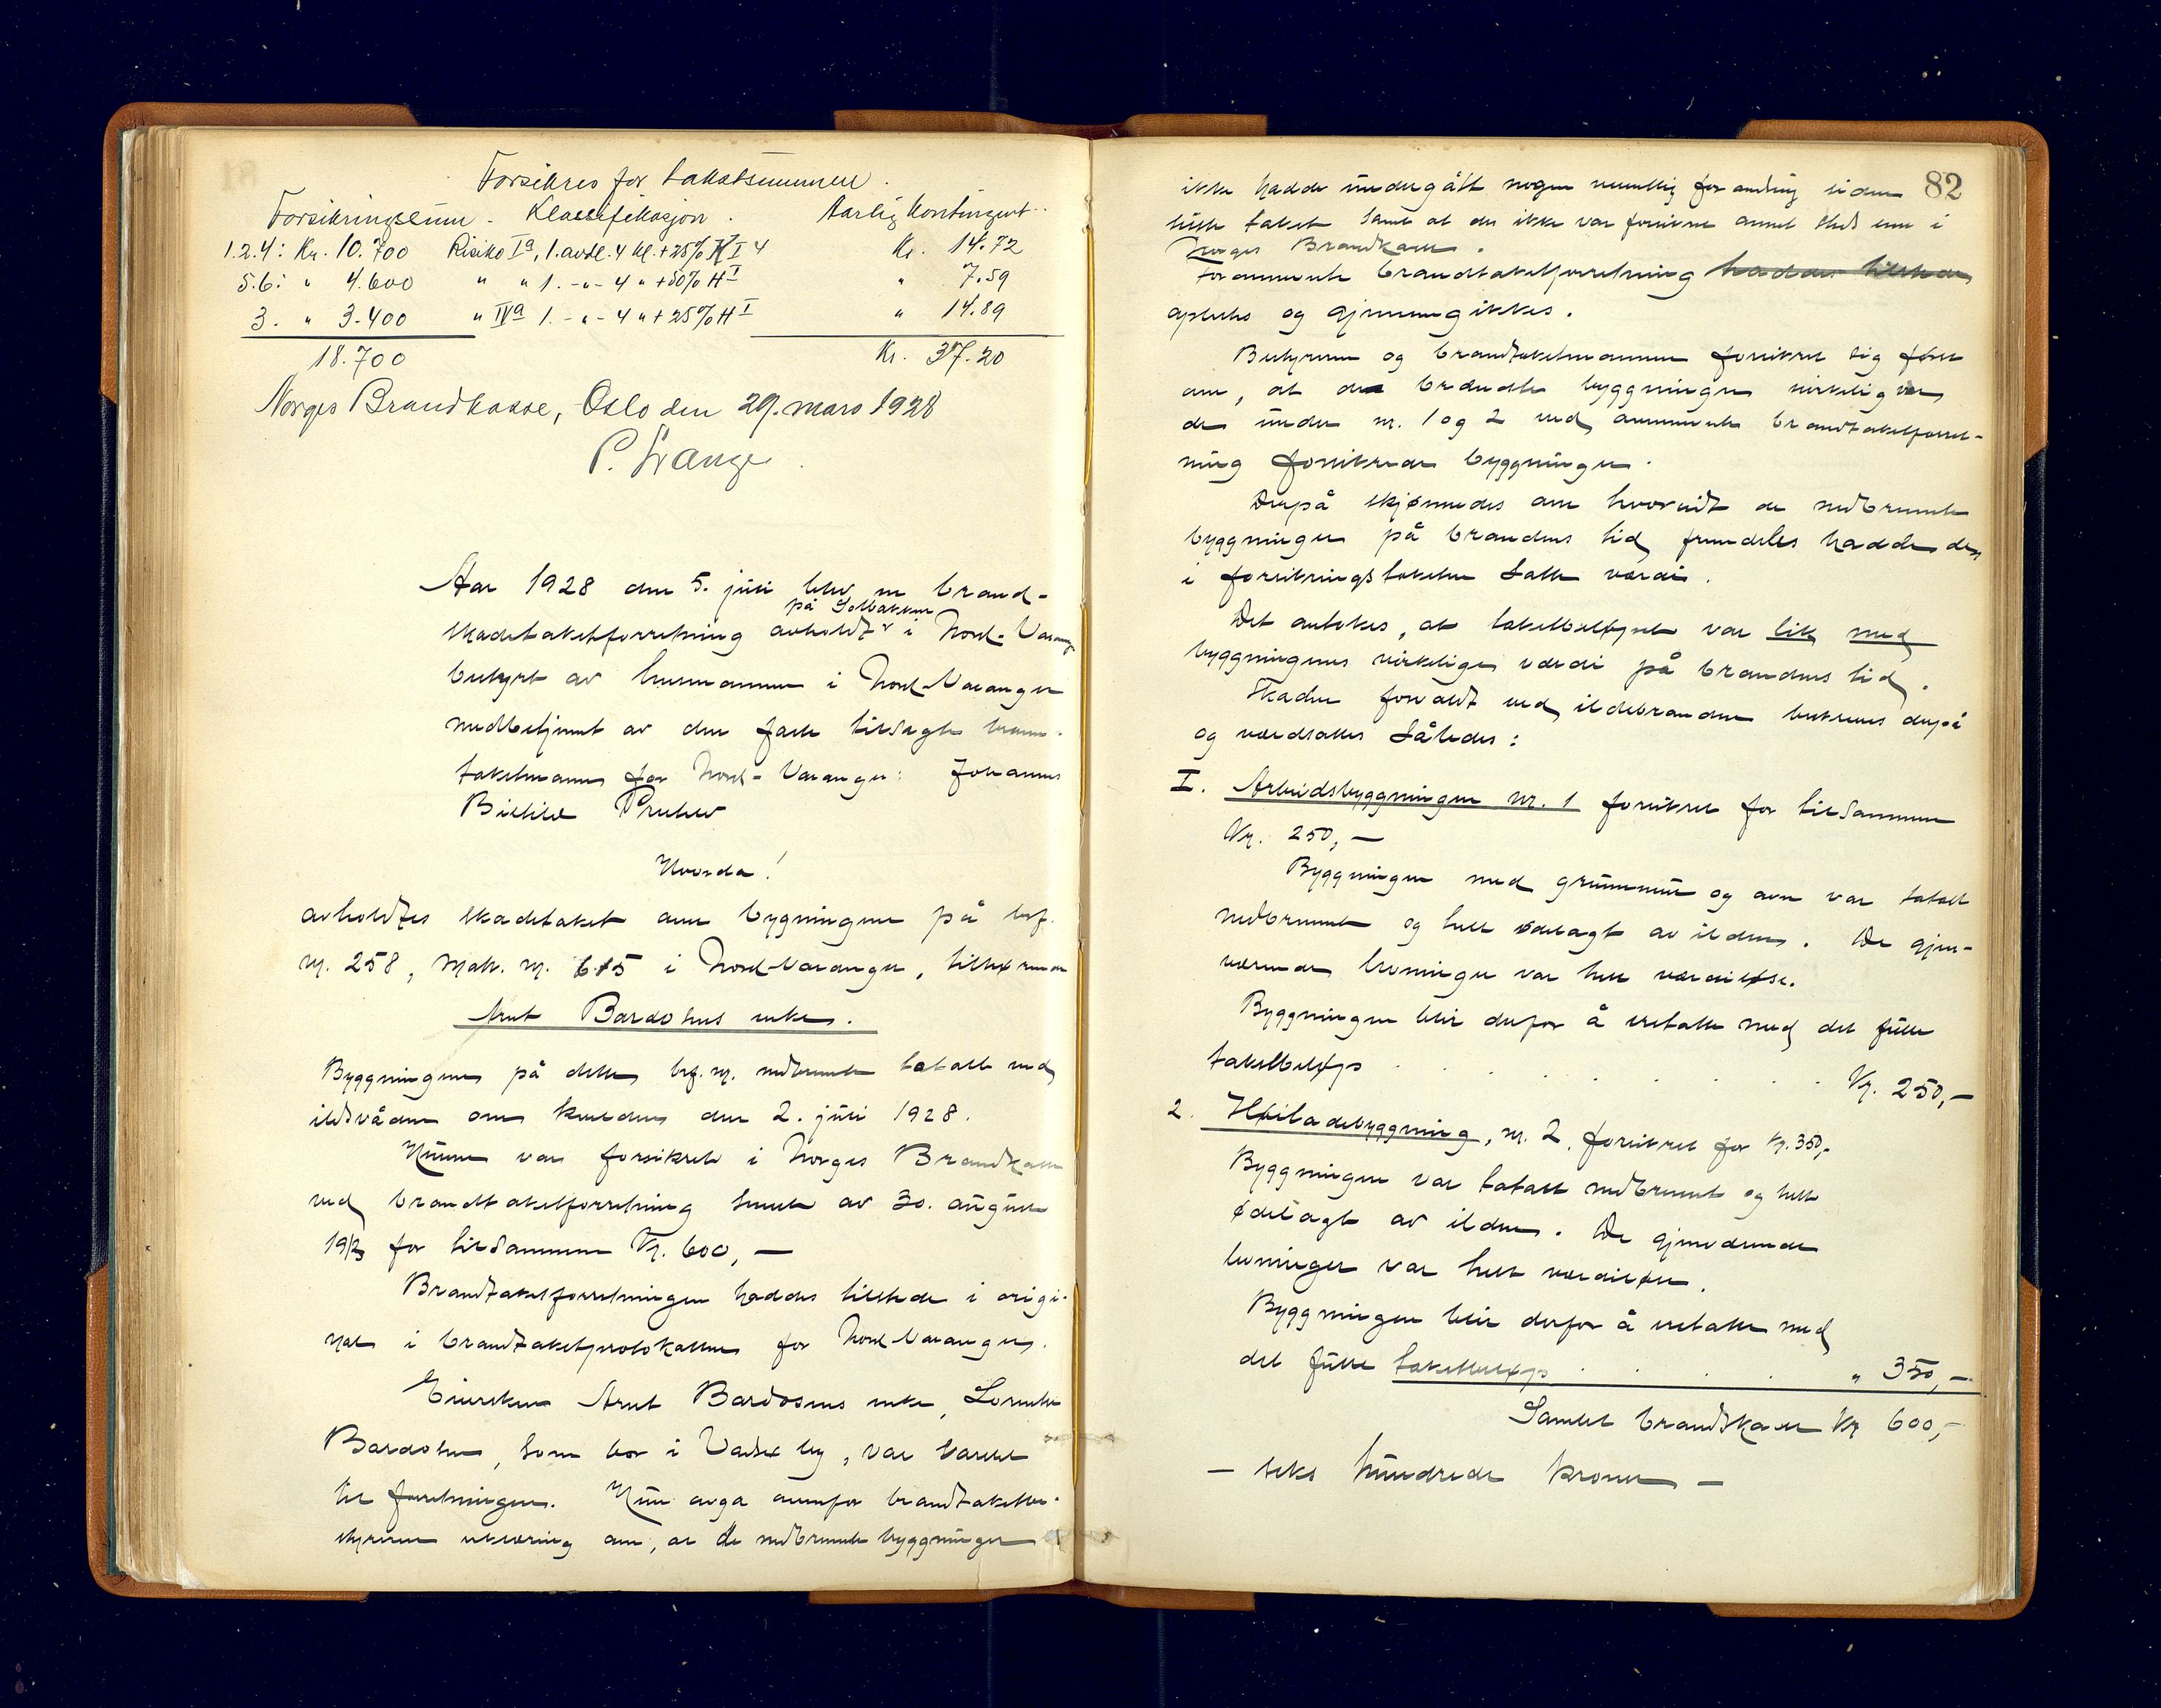 Forsikres for takstsummen.
Forsikringssum. Klassifikasjon. Aarlig Kontingent.
1.2.4: Kr. 10.700 Risiko Ia, 1. avdl. 4 kl. + 25% H I 4 Kr. 14.72
5.6: " 4.600 " " 1. -"- 4 " + 50% H I " 7.59
3. " 3.400 " IVa 1. -"- 4 " + 25% H I " 14.89
18.700 Kr. 37.20
Norges Brandkasse, Oslo den 29. mars 1928
P. Stange
Aar 1928 den 5. juli blev en brand-
på Solbakken
skadetakstforretning avholdt i Nord-Varanger
bestyrt av lensmannen i Nord-Varanger
medbetjent av den faste tilsagte brann-
takstmann for Nord-Varanger: Johannes
Bittilæ Prestelv
Hvorda!
avholdtes skadetakst over bygningene på brf.
nr. 258, Matr. nr. 615 i Nord-Varanger, tilhørende
Arnt Bardosens enke.
Byggningene på dette brf. nr. nedbrente totalt ved
ildsvåden om kvelden den 2. juli 1928.
Husene var forsikret i Norges Brandkasse
ved brandtakstforretning sluttet av 30. august
1913 for tilsammen Kr. 600,—
Brandtakstforretningen haddes tilstede i origi-
nal i brandtakstprotokollen for Nord-Varanger.
Eiersken Arnt Bardosens enke, Lorentse
Bardosen, som bor i Vadsø by, var varslet
til forretningen. Hun avga overfor brandtakstbe-
styreren erklæring om, at de nedbrente byggninger
82
ikke hadde undergått nogen vesentlig forandring siden
siste takst samt at de ikke var forsikret annet sted enn i
Norges Brandkasse.
Forannevnte brandtakstforretning haddes tilstede
oplestes og gjennemgikkes.
Bestyreren og brandtakstmannen forsikret sig først
om, at de brændte byggninger virkelig var
de under nr. 1 og 2 ved ovennevnte brandtakstforret-
ning forsikrede byggninger.
Derpå skjønnedes om hvorvidt de nedbrente
byggninger på brandens tid fremdeles hadde den
i forsikringstaksten satte værdi.
Det antokes, at takstbeløpet var lik med
byggningenes virkelige værdi på brandens tid.
Skaden forvoldt ved ildebranden beskreves derpå
og værdsattes således:
I. Arbeidsbyggningen nr. 1 forsikret for tilsammen
Kr. 250,—
Byggningen med grunnmur og ovn var totalt
nedbrennt og helt ødelagt av ilden. De gjen-
værende levninger var helt værdiløse.
Byggningen blir derfor å erstatte med det fulle
takstbeløp . . . . . . . Kr. 250,—
2. Høiladebyggning, nr. 2. forsikret for Kr. 350,-
Byggningen var totalt nedbrennt og helt
ødelagt av ilden. De gjenværende
levninger var helt værdiløse.
Byggningen blir derfor å erstatte med
det fulle takstbeløp . . . . " 350,—
Samlet brandskade Kr 600,-
— seks hundrede kroner —